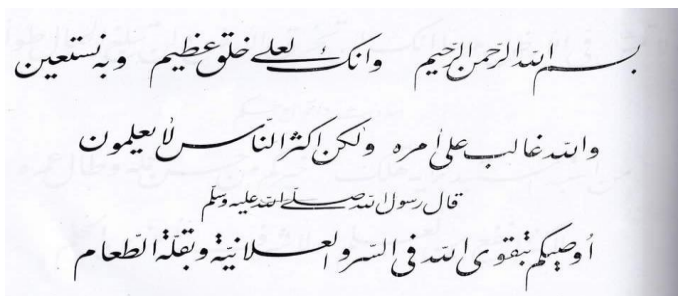 بسم الله الرحمن الرحيم وانك لعلے خلق عظيم وبه نستعين
والله غالب على أمره ولكن اكثر النّاس لا يعلمون
قال رسول الله صلّے الله عليه وسلّم
أوصيكم بتقوى الله فى السّر والعلانيّة وبقلّة الطّعام